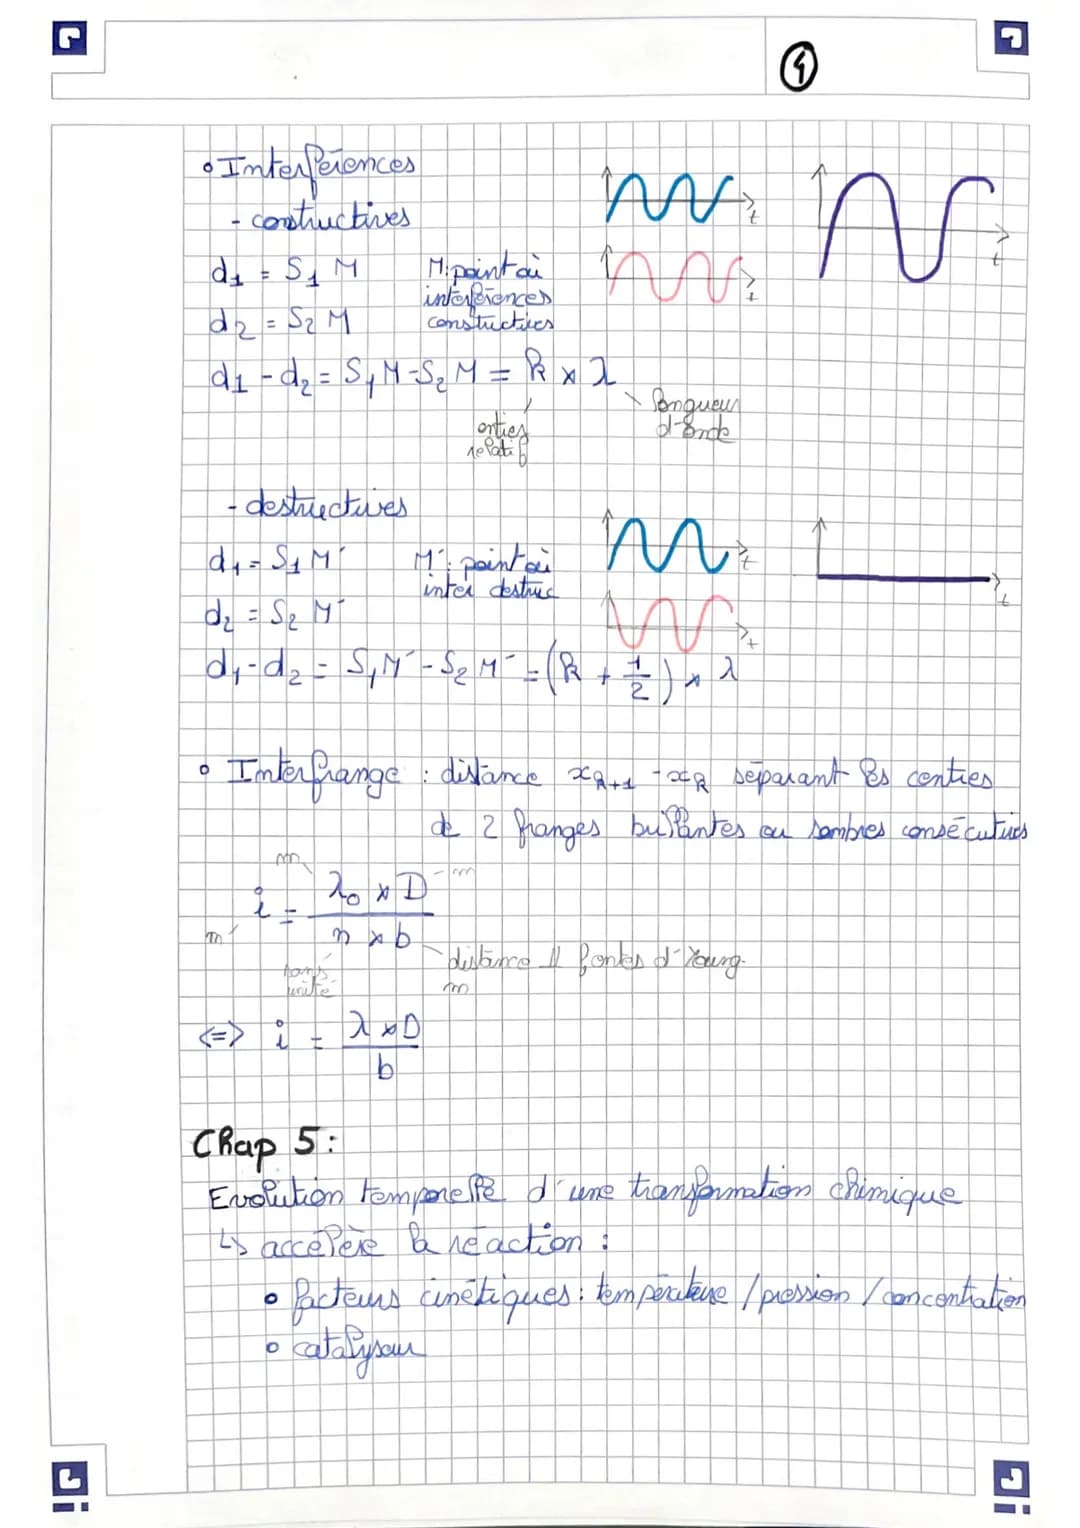 ④
• Interférences
- constructives
d₁ = S₁ M
M: point où
interférences
constructives
d₂ = S₂ M
d₁ - d₂ = S₁M - S₂M = k × λ
entier
relatif
longueur
d'onde
t
t
t
- destructives
d₁ = S₁ M'
M': point où
inter destruc
d₂ = S₂ M'
d₁ - d₂ = S₁M' - S₂M' = (k + 1/2) × λ
t
t
t
• Interfrange : distance xₖ₊₁ - xₖ séparant les centres
de 2 franges brillantes ou sombres consécutives
m
m
i = λ₀ × D / n × b
m
sans
unité
distance // fentes d'Young
m
<=> i = λ × D / b
Chap 5 :
Evolution temporelle d'une transformation chimique
↳ accélère la réaction :
• facteurs cinétiques : température / pression / concentration
• catalyseur